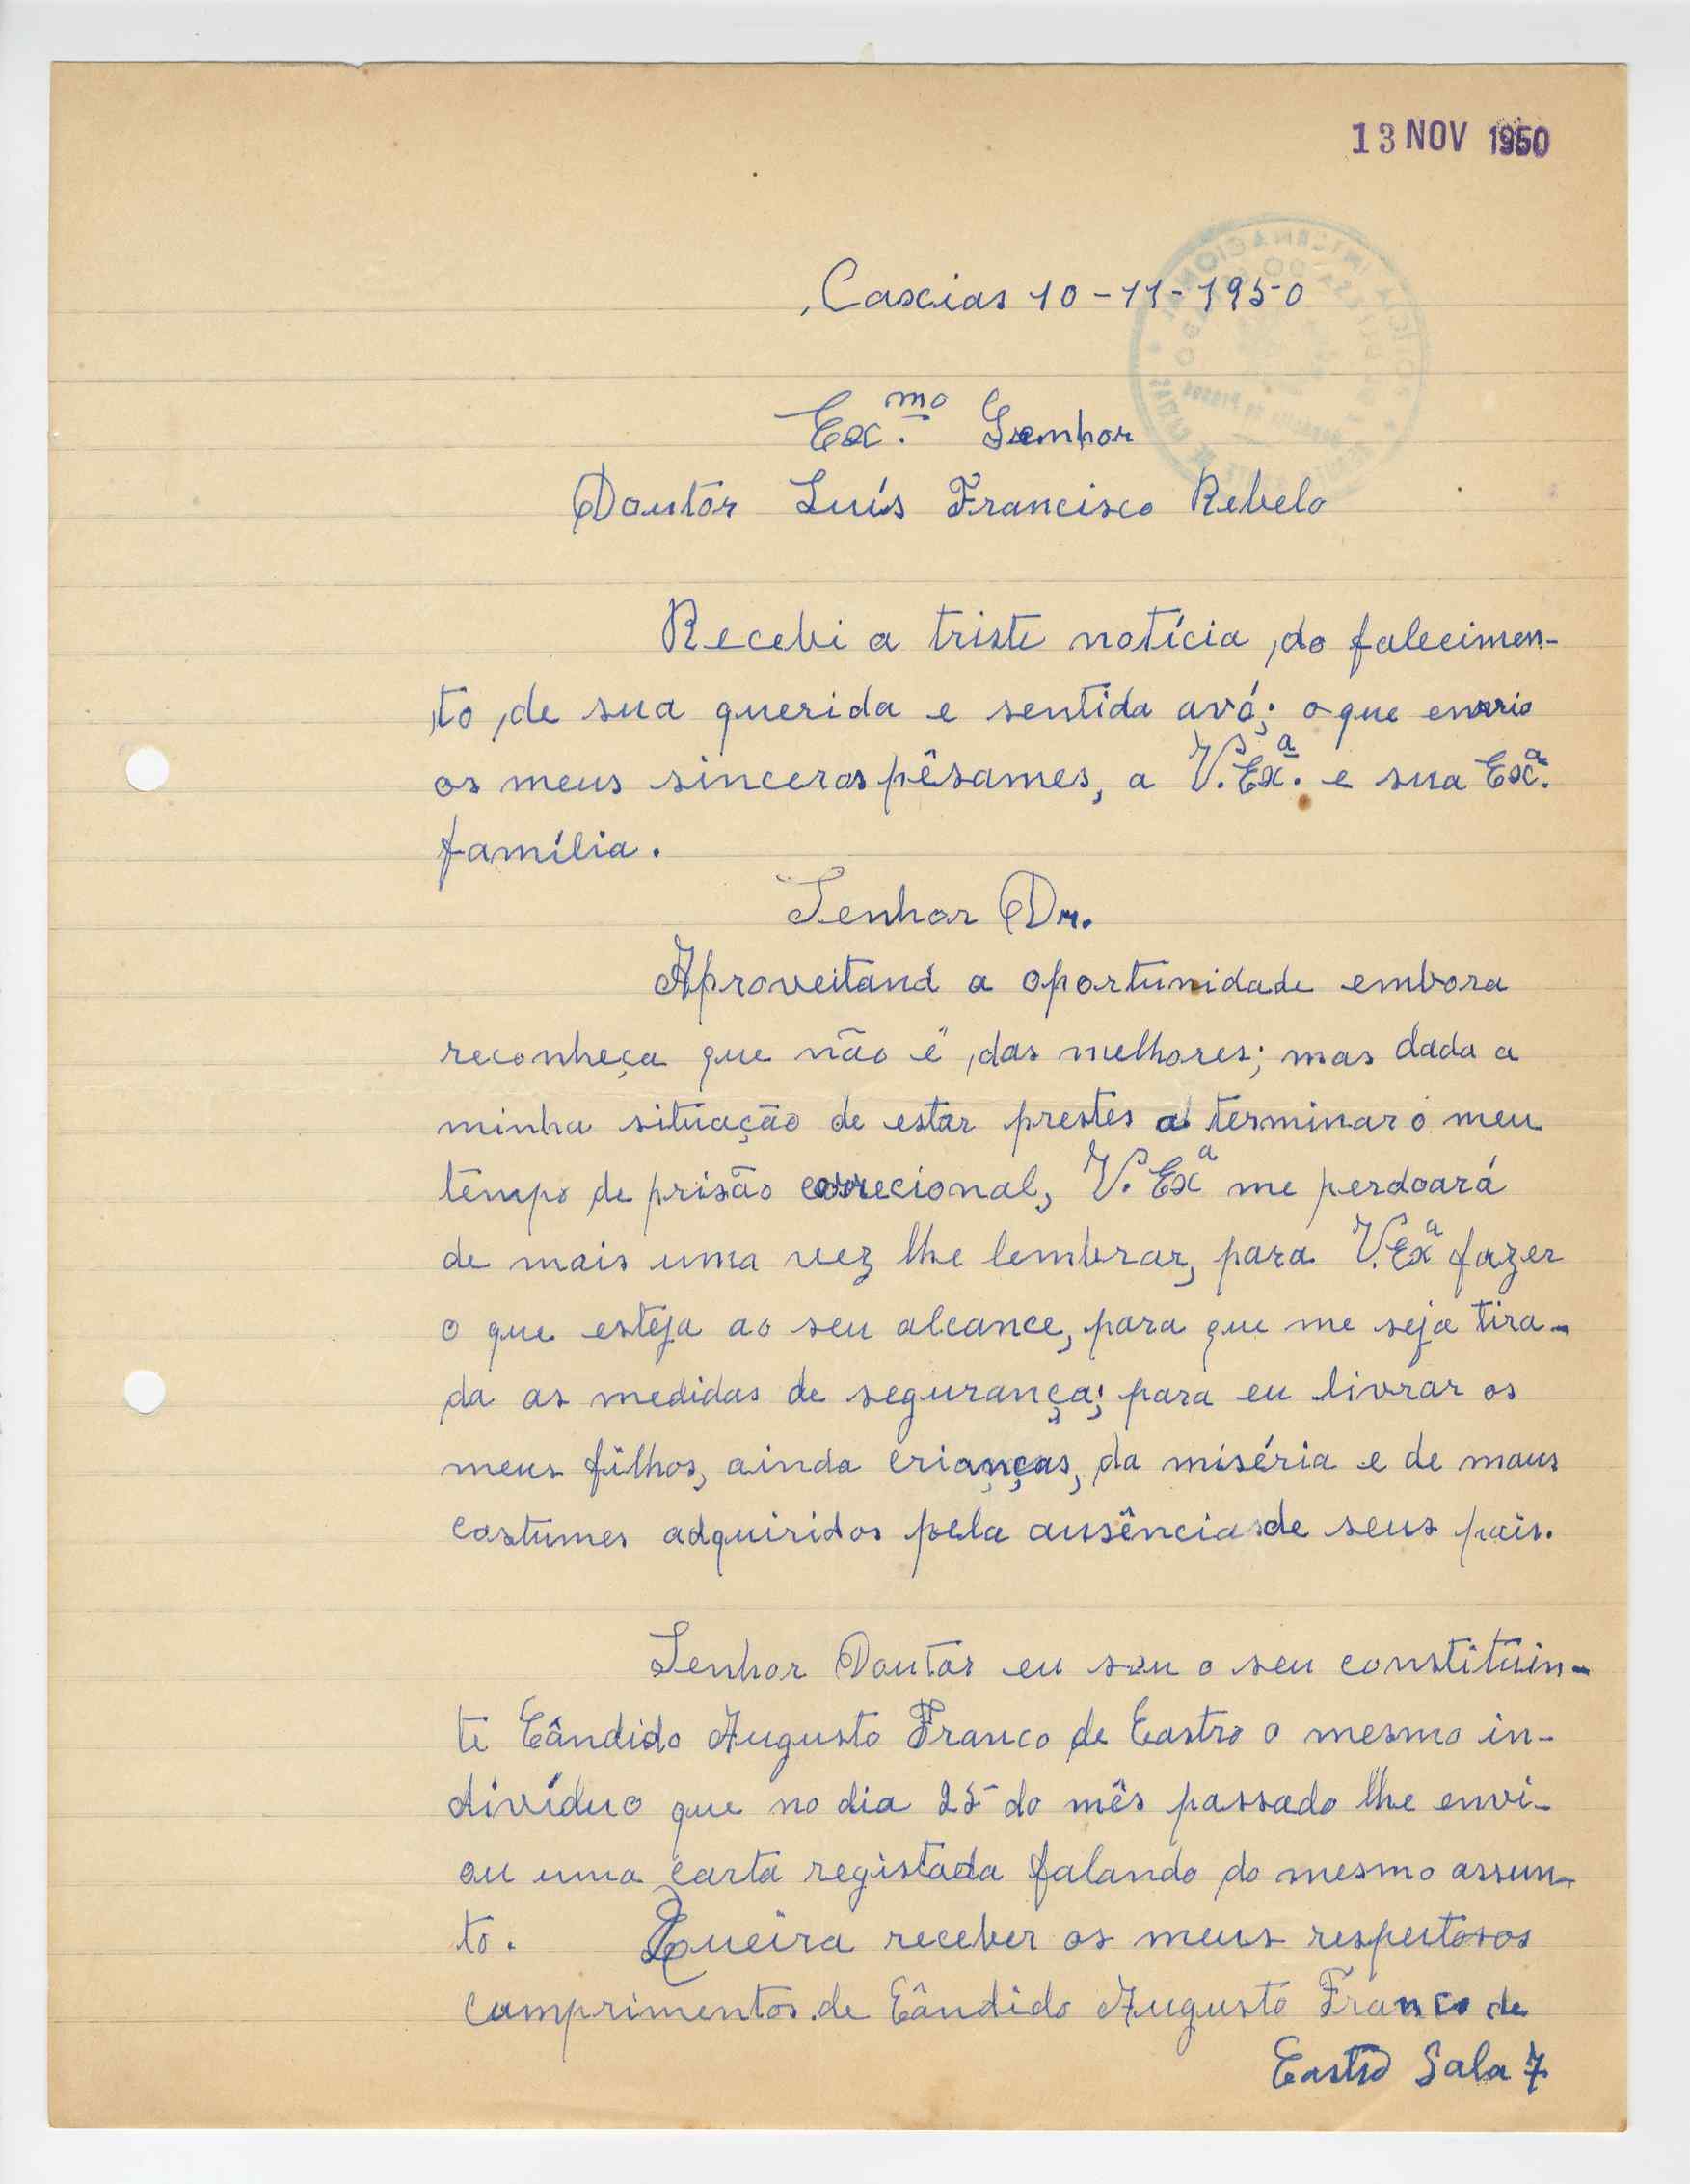 13 NOV 1950
Caxias 10-11-1950
Ex.mo Senhor
Doutor Luís Francisco Rebelo
Recebi a triste notícia, do falecimen-
to, de sua querida e sentida avó; o que envio
os meus sinceros pêsames, a V. Ex.a e sua Ex.a
família.
Senhor Dr.
Aproveitand a oportunidade embora
reconheça que não é, das melhores; mas dada a
minha situação de estar prestes a terminar o meu
tempo de prisão correcional, V. Exa me perdoará
de mais uma vez lhe lembrar, para V. Exa fazer
o que esteja ao seu alcance, para que me seja tira-
da as medidas de segurança; para eu livrar os
meus filhos, ainda crianças, da miséria e de maus
costumes adquiridos pela ausência de seus pais.
Senhor Doutor eu sou o seu constituin-
te Cândido Augusto Franco de Castro o mesmo in-
divíduo que no dia 25 do mês passado lhe envi-
ou uma carta registada falando do mesmo assun-
to. Queira receber os meus respeitosos
comprimentos. de Cândido Augusto Franco de
Castro Sala 7